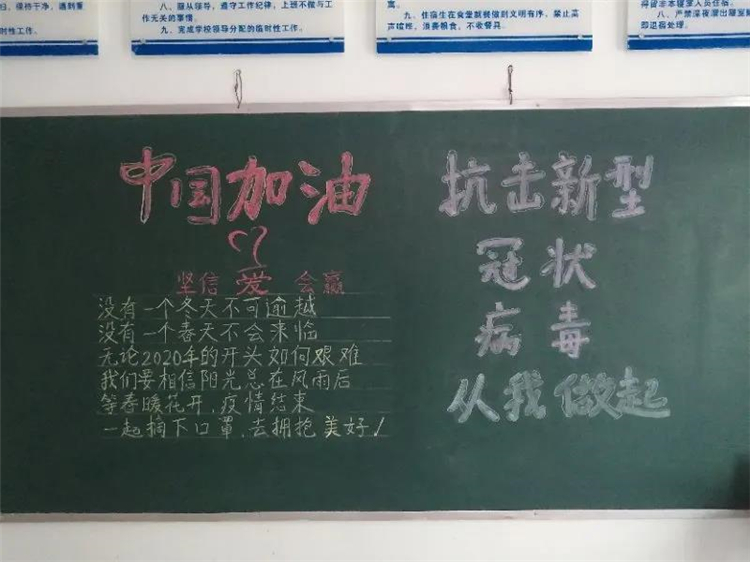 扫，保持干净，遇到重
时性工作。
八、服从领导，遵守工作纪律，上班不做与工
作无关的事情。
九、完成学校领导分配的临时性工作。
九、住宿生在食堂就餐做到文明有序，禁止高
声喧哗、浪费粮食、不收餐具。
得留非本寝室人员住宿。
八、严禁深夜溜出寝室
即退宿处理。
中国加油
坚信 爱 会赢
没有一个冬天不可逾越
没有一个春天不会来临
无论2020年的开头如何艰难
我们要相信阳光总在风雨后
等春暖花开，疫情结束
一起摘下口罩，去拥抱美好！
抗击新型
冠状
病毒
从我做起